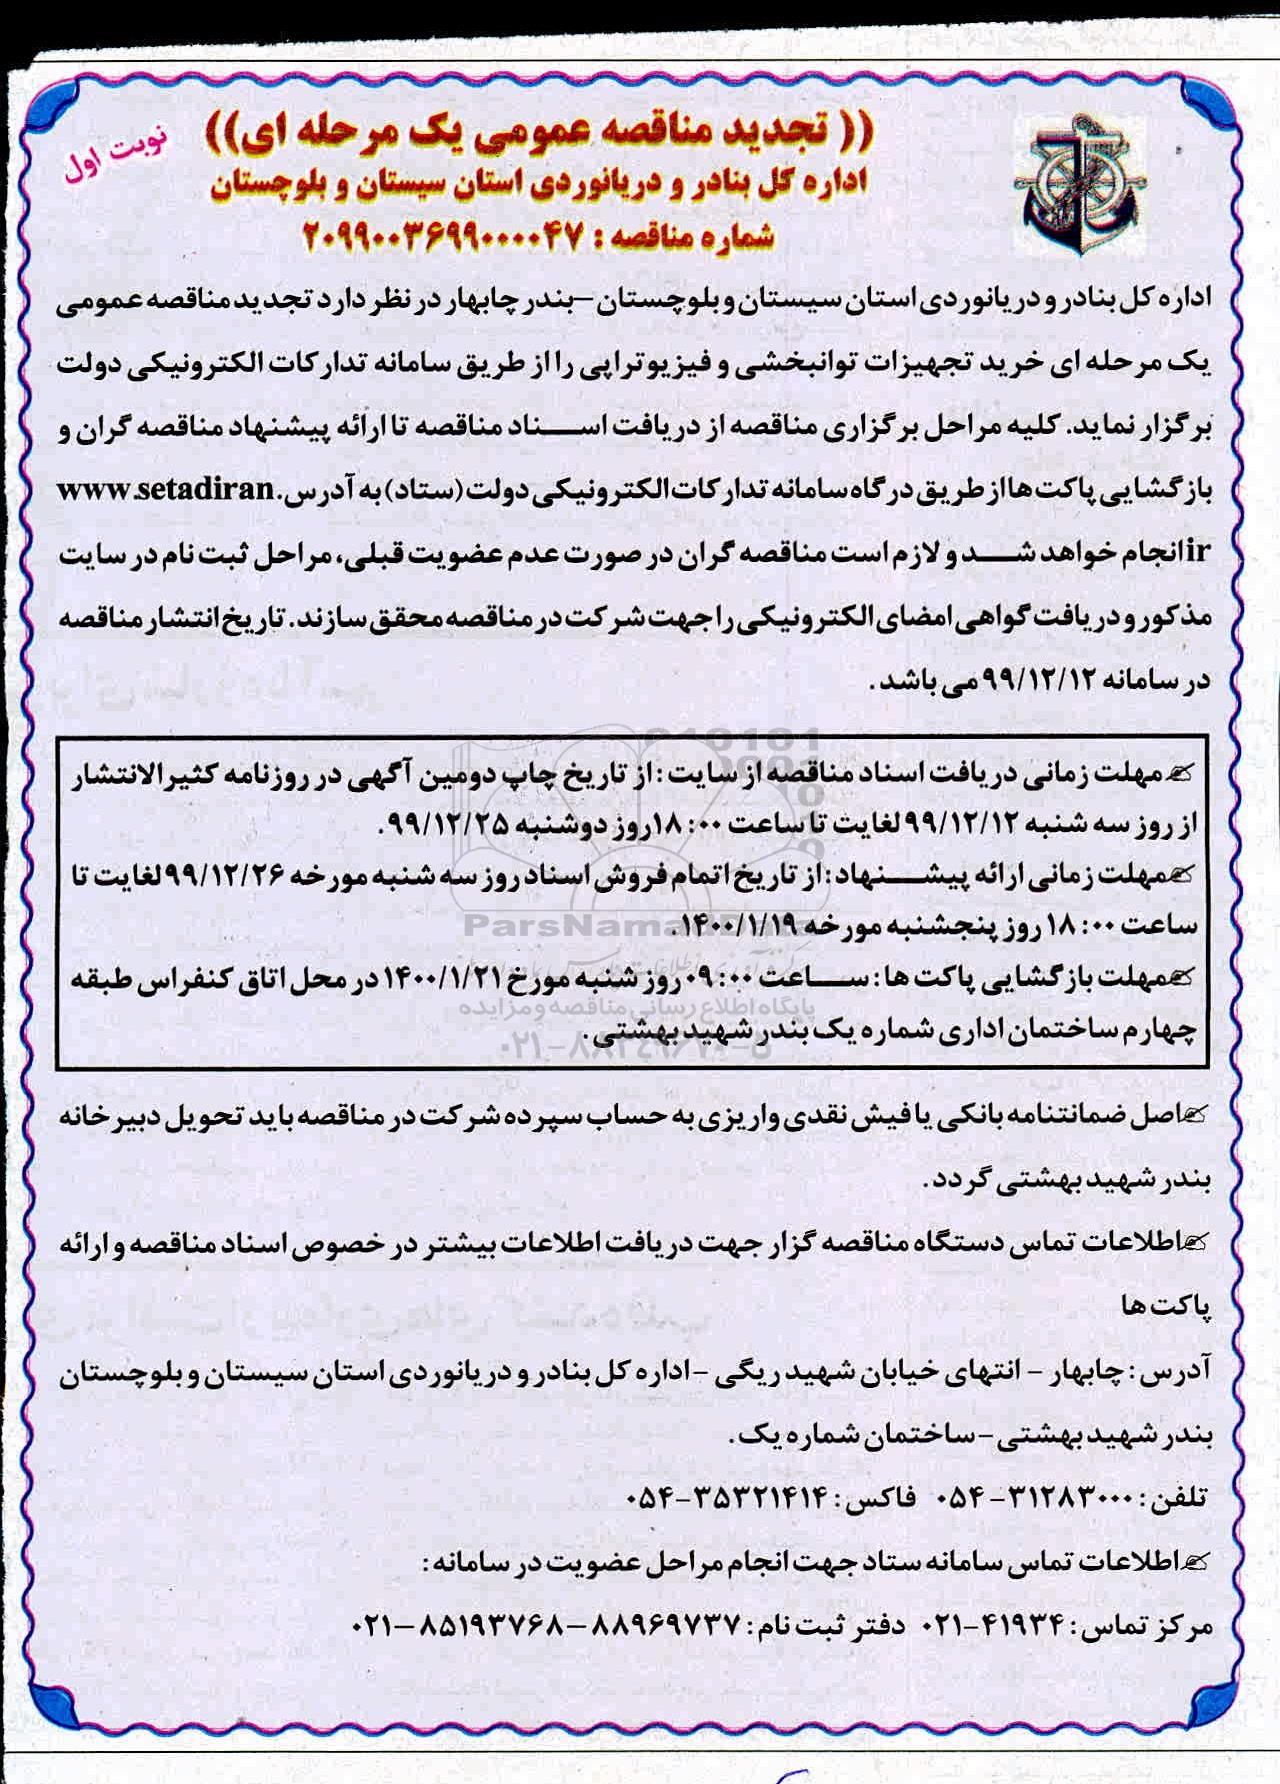 (( تجدید مناقصه عمومی یک مرحله ای))
نوبت اول
اداره کل بنادر و دریانوردی استان سیستان و بلوچستان
شماره مناقصه : ۲۰۹۹۰۰۳۶۹۹۰۰۰۰۴۷
اداره کل بنادر و دریانوردی استان سیستان و بلوچستان –بندر چابهار در نظر دارد تجدید مناقصه عمومی
یک مرحله ای خرید تجهیزات توانبخشی و فیزیوتراپی را از طریق سامانه تدارکات الکترونیکی دولت
برگزار نماید. کلیه مراحل برگزاری مناقصه از دریافت اسناد مناقصه تا ارائه پیشنهاد مناقصه گران و
بازگشایی پاکت ها از طریق درگاه سامانه تدارکات الکترونیکی دولت (ستاد) به آدرس www.setadiran.
ir انجام خواهد شد و لازم است مناقصه گران در صورت عدم عضویت قبلی، مراحل ثبت نام در سایت
مذکور و دریافت گواهی امضای الکترونیکی را جهت شرکت در مناقصه محقق سازند. تاریخ انتشار مناقصه
در سامانه ۹۹/۱۲/۱۲ می باشد.
مهلت زمانی دریافت اسناد مناقصه از سایت : از تاریخ چاپ دومین آگهی در روزنامه کثیرالانتشار
از روز سه شنبه ۹۹/۱۲/۱۲ لغایت تا ساعت ۱۸:۰۰ روز دوشنبه ۹۹/۱۲/۲۵.
مهلت زمانی ارائه پیشنهاد : از تاریخ اتمام فروش اسناد روز سه شنبه مورخه ۹۹/۱۲/۲۶ لغایت تا
ساعت ۱۸:۰۰ روز پنجشنبه مورخه ۱۴۰۰/۱/۱۹.
مهلت بازگشایی پاکت ها : ساعت ۰۹:۰۰ روز شنبه مورخ ۱۴۰۰/۱/۲۱ در محل اتاق کنفراس طبقه
چهارم ساختمان اداری شماره یک بندر شهید بهشتی .
ParsNamad
پایگاه اطلاع رسانی مناقصه و مزایده
۰۲۱-۸۸۳۴۹۶۷۰-۵
اصل ضمانتنامه بانکی یا فیش نقدی واریزی به حساب سپرده شرکت در مناقصه باید تحویل دبیرخانه
بندر شهید بهشتی گردد.
اطلاعات تماس دستگاه مناقصه گزار جهت دریافت اطلاعات بیشتر در خصوص اسناد مناقصه و ارائه
پاکت ها
آدرس : چابهار - انتهای خیابان شهید ریگی -اداره کل بنادر و دریانوردی استان سیستان و بلوچستان
بندر شهید بهشتی-ساختمان شماره یک.
تلفن : ۳۱۲۸۳۰۰۰-۰۵۴ فاکس : ۳۵۳۲۱۴۱۴-۰۵۴
اطلاعات تماس سامانه ستاد جهت انجام مراحل عضویت در سامانه:
مرکز تماس : ۴۱۹۳۴-۰۲۱ دفتر ثبت نام : ۸۸۹۶۹۷۳۷–۸۵۱۹۳۷۶۸–۰۲۱